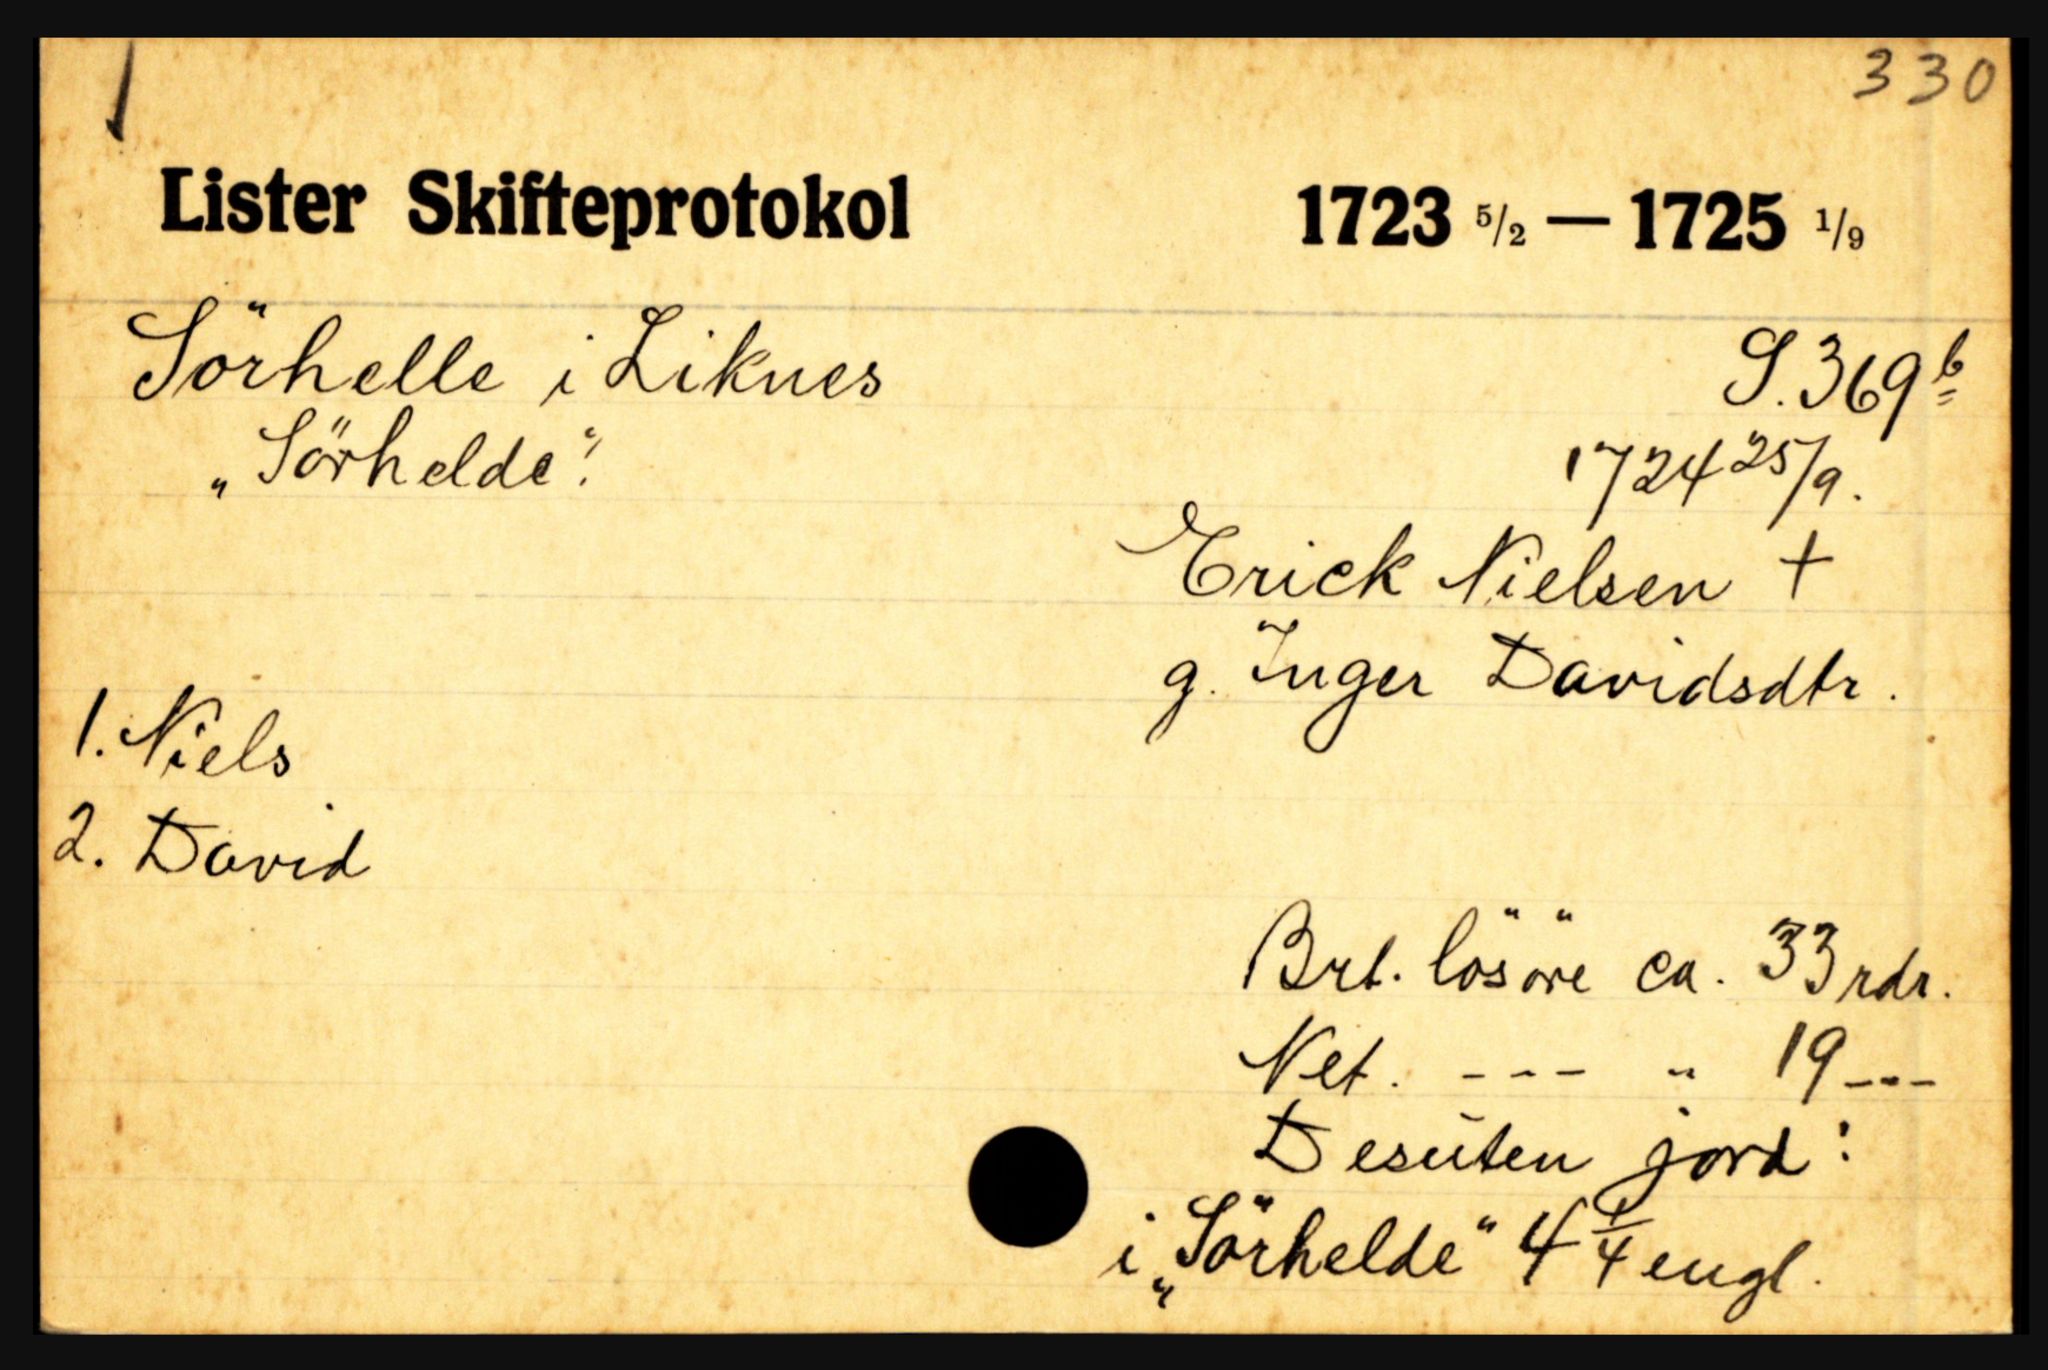 330
Lister Skifteprotokol 1723 5/2 — 1725 1/9
Sörhelle i Liknes S. 369 b
„Sörhelde“. 1724 25/9.
Erick Nielsen †
g. Inger Davidsdtr.
1. Niels
2. David
Brt. lösöre ca. 33 rdr.
Net. - - - „ 19 - - -
Desuten jord:
i „Sörhelde“ 4 1/4 engl.